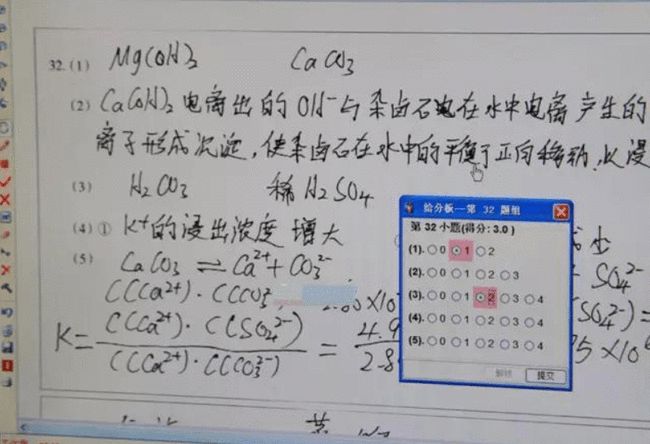 32.(1) Mg(OH)2 CaCO3
(2) Ca(OH)2电离出的OH-与杂卤石电在水中电离产生的
离子形成沉淀,使杂卤石在水中的平衡于正向移动,以浸
(3) H2CO3 稀H2SO4
(4)① K+的浸出浓度 增大
(5) CaCO3 ⇌ Ca2+ + CO32-
C(Ca2+)·C(CO3
K= C(Ca2+)·C(SO42-)
C(Ca2+)·C(CO32-)
=
4.9
2.8
SO42-
(SO42-)=
5×10
给分板--第 32 题组
第 32 小题(得分: 3.0 )
(1). 0 1 2
(2). 0 1 2 3
(3). 0 1 2 3 4
(4). 0 1 2 3 4
(5). 0 1 2 3 4
提交